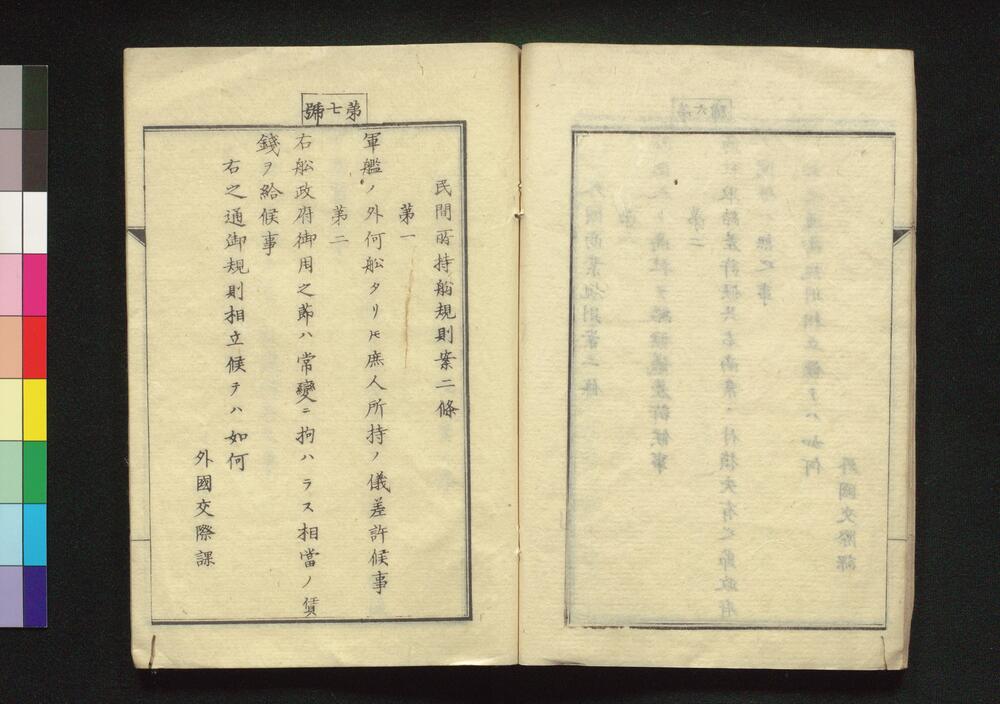 第七號
民間所持舩規則案二條
第一
軍艦ノ外何舩タリトモ庶人所持ノ儀差許候事
第二
右舩政府御用之節ハ常變ニ拘ハラス相當ノ賃
錢ヲ給候事
右之通御規則相立候テハ如何
外國交際課